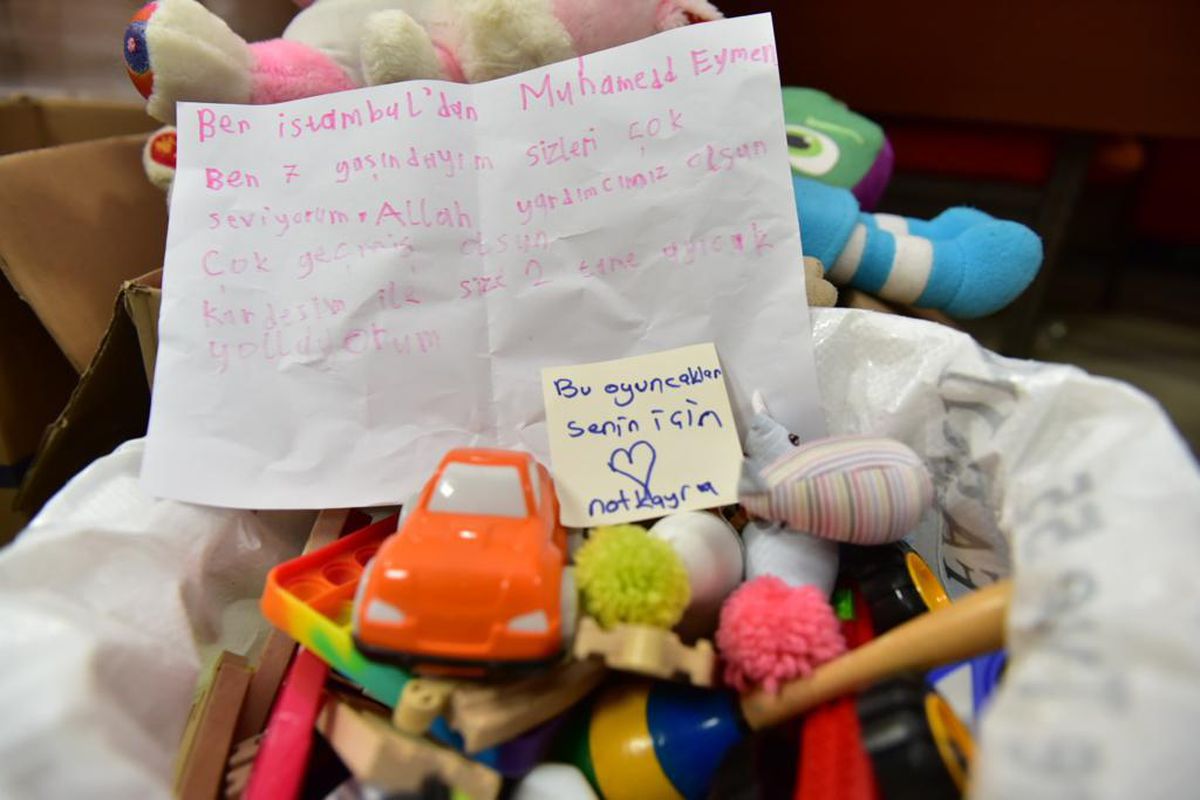 Ben istambul'dan Muhamedd Eymen
Ben 7 yaşındayım sizleri çok
seviyorum. Allah yardımcımız olsun
Çok geçmiş olsun
Kardeşim ile size 2 tane oyıcak
yolluyorum
Bu oyuncaklar
senin için
not kayra